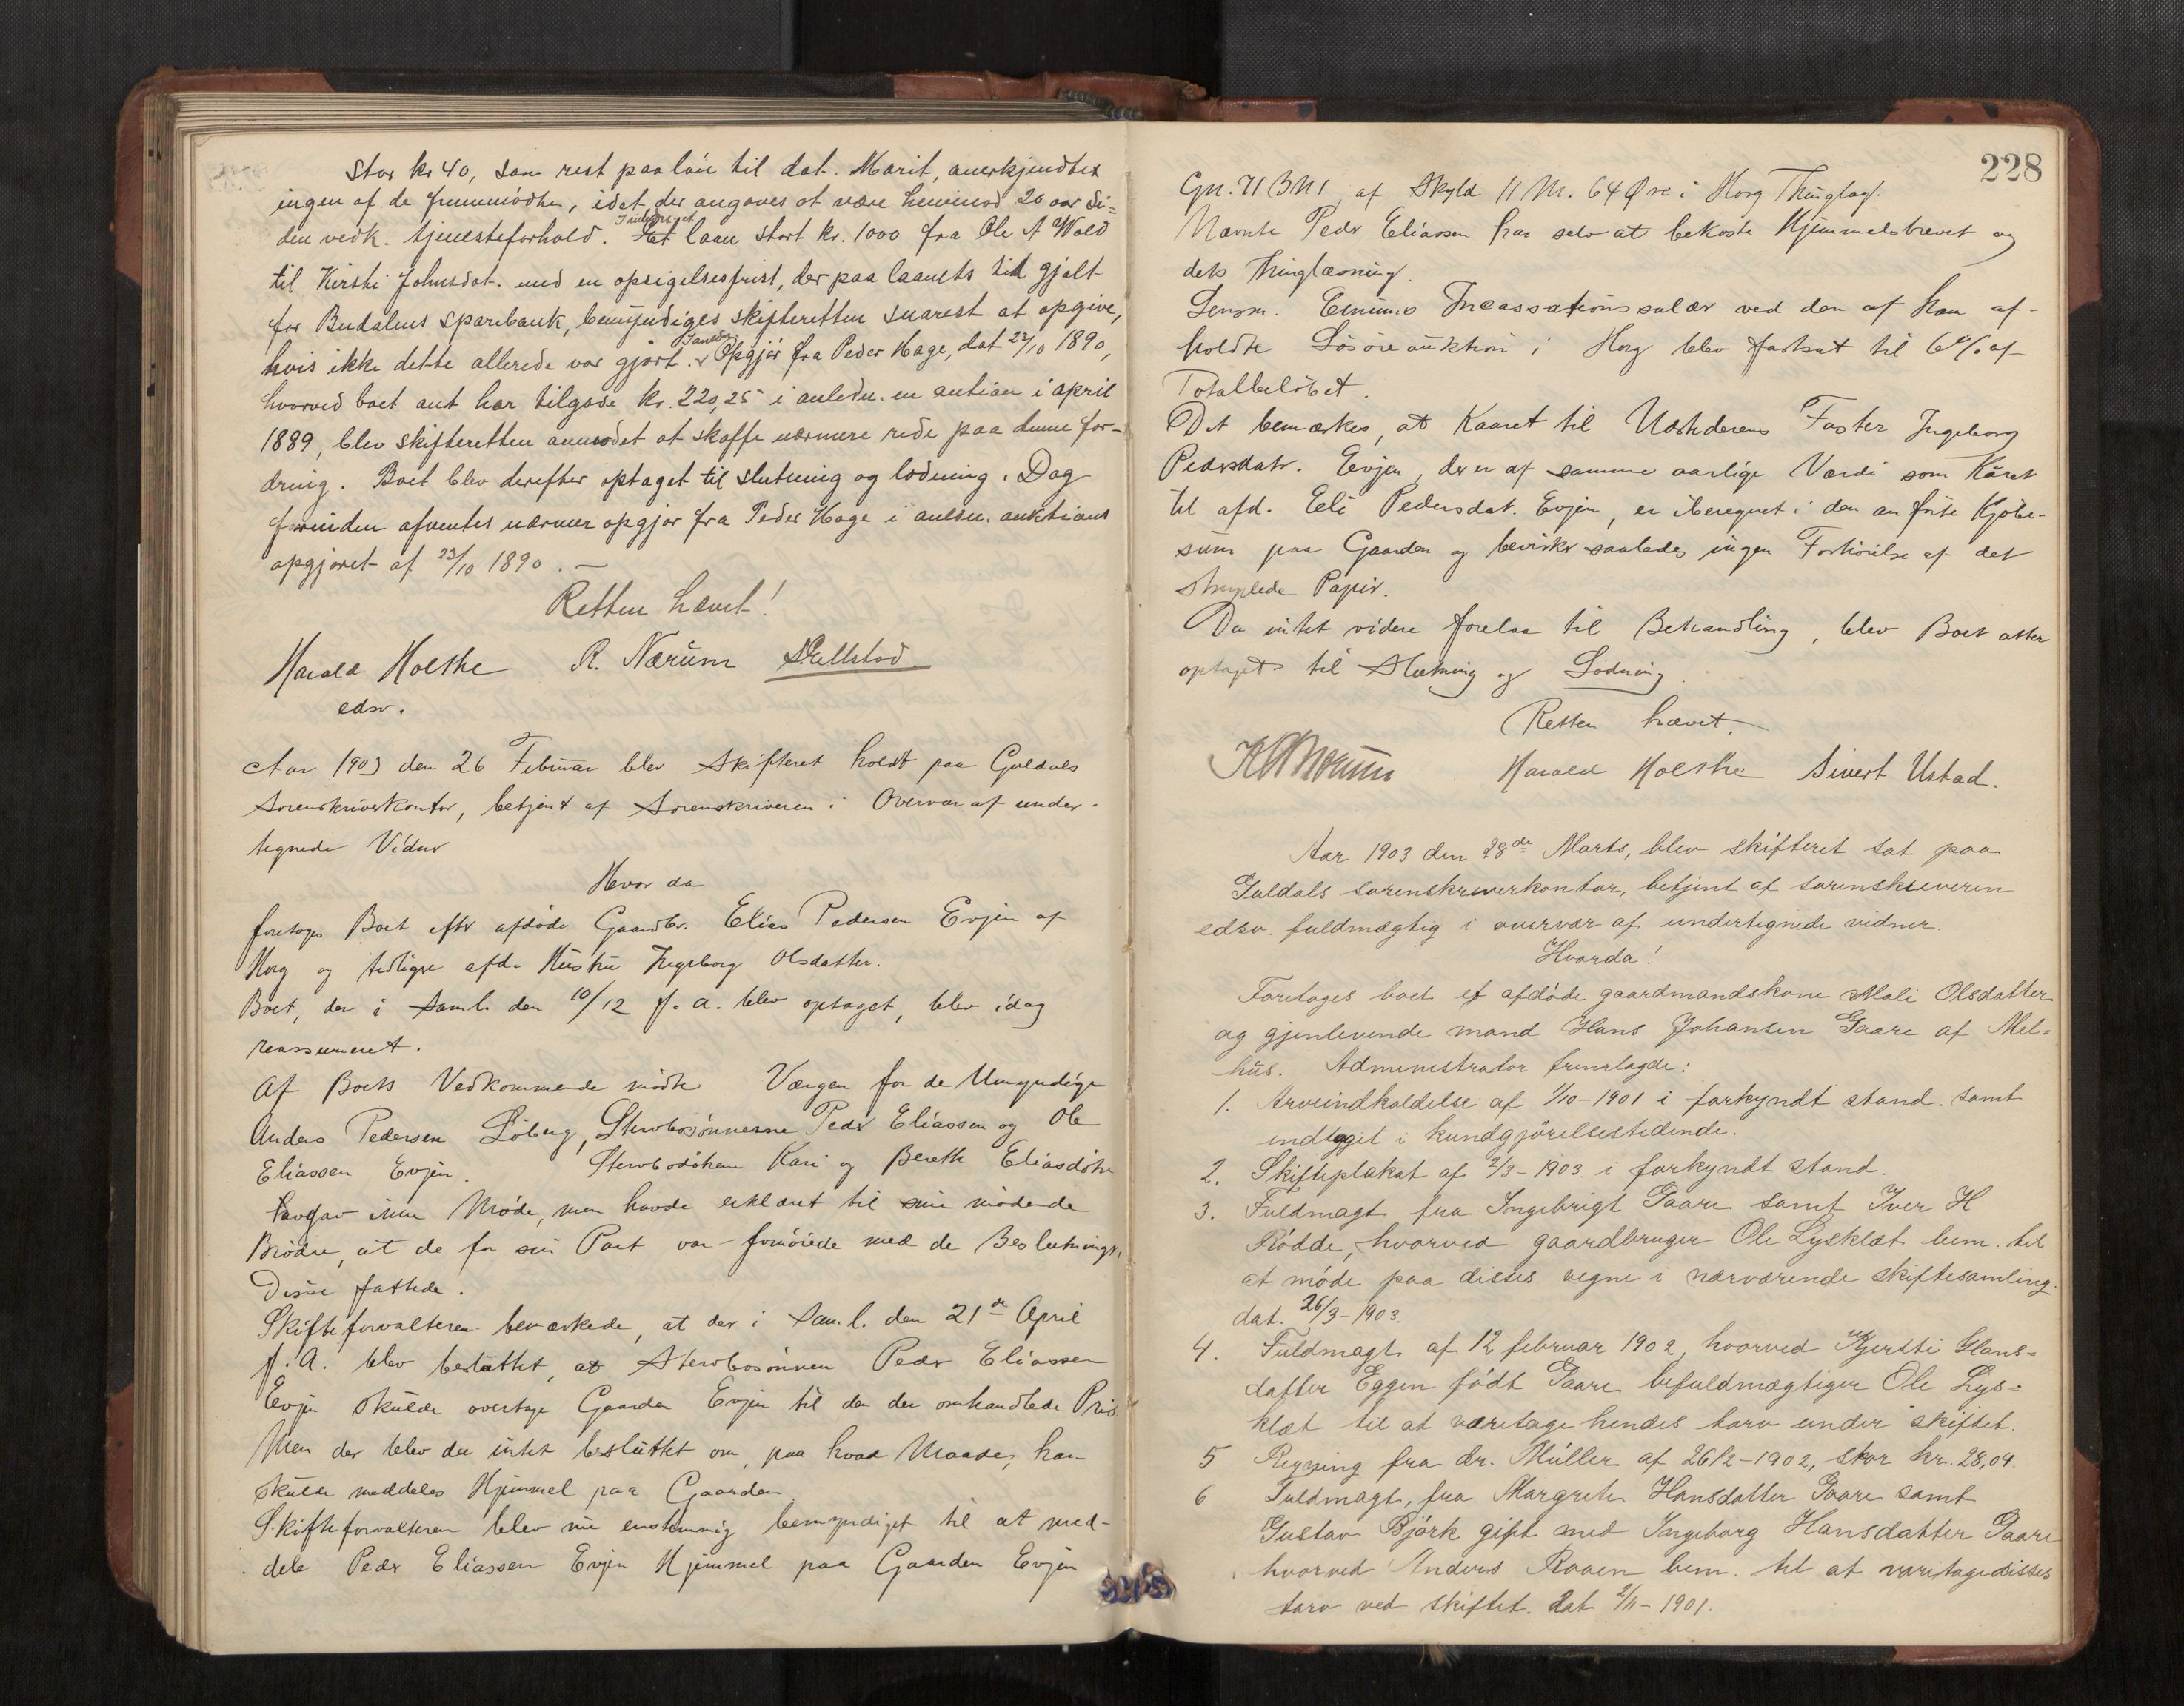 stor kr 40, som rest paa lön til dat. Marit, anerkjendtes
ingen af de fremmödte, idet der angaves at være henimod 20 aar si=
den vedk. tjenesteforhold. Et laan stort kr. 1000 fra Ole A Wold
til Kirsti Johnsdat. med en opsigelsesfrist, der paa laanets tid gjalt
for Budalens sparebank, bemyndiges skifteretten snarest at opgive,
hvis ikke dette allerede var gjort. Opgjör fra Peder Hage, dat 23/10 1890,
hvorved boet ant har tilgode kr. 220,25 i anledn. en auktion i april
1889, blev skifteretten anmodet at skaffe nærmere rede paa denne for-
dring. Boet blev derefter optaget til slutning og lodning. Dog
forinden afventes nærmere opgjør fra Peder Hage i anledn. auktions
opgjøret af 23/10 1890.—
Retten hævet!
Harald Holthe R. Nærum
edsv.
Aar 1903 den 26 Februar blev Skifteret holdt paa Guldals
Sorenskriverkontor, betjent af Sorenskriveren i Overvær af under-
tegnede Vidner
Hvor da
foretoges Boet efter afdøde Gaardbr. Elias Pedersen Evjen af
Horg og tidligere afd. Hustru Ingeborg Olsdatter.
Boet, der i Saml. den 10/12 f. a. blev optaget, blev idag
reassumeret.
Af Boets Vedkommende mødte Værgen for de Umyndige
Anders Pedersen Löberg, Stervbosönnerne Peder Eliassen og Ole
Eliassen Evjen. Stervbodötrene Kari og Berethe Eliasdötre
havde erklæret til sine mødende
Brødre, at de for sin Part var fornöiede med de Beslutninger,
Disse fattede.
Skifteforvalteren bemærkede, at der i Saml. den 21de April
f. A. blev besluttet, at Stervbosönnen Peder Eliassen
Evjen skulde overtage Gaarden Evjen til den der omhandlede Pris
Men der blev da intet besluttet om, paa hvad Maade, han
skulde meddeles Hjemmel paa Gaarden
Skifteforvalteren blev nu enstemmig bemyndiget til at med-
dele Peder Eliassen Evjen Hjemmel paa Gaarden Evjen
228
Gn. 71 BN 1, af Skyld 11 M. 64 Øre i Horg Thinglag.
Nævnte Peder Eliassen har selv at bekoste Hjemmelsbrevet og
dets Thinglæsning.
Lensm. Incassationssalær ved den af ham af-
holdte Lösöreauktion i Horg blev fastsat til 6 % af
Totalbelöbet.
Det bemærkes, at Kaaret til Faster Ingeborg
Pedersdatr. Evjen, der er af samme aarlige Værdi som Kåret
til afd. Eli Pedersdat. Evjen, er iberegnet i den anførte Kjöbe-
sum paa Gaarden og bevirker saaledes ingen Forhöielse af det
stemplede Papir.
Da intet videre forelaa til Behandling, blev Boet atter
optaget til Slutning og Lodning.
Retten hævet.
Harald Holthe Sivert Ustad.
Aar 1903 den 28de Marts, blev skifteret sat paa
Guldals sorenskriverkontor, betjent af sorenskriveren
edsv. fuldmægtig i overvær af undertegnede vidner.
Hvorda!
Foretoges boet ef afdöde gaardmandskone Mali Olsdatter
og gjenlevende mand Hans Johansen Gaare af Mel=
hus. Administrator fremlagde:
1. Arveindkaldelse af 1/10-1901 i forkyndt stand. samt
indtaget i kundgjörelsestidende.
2. Skifteplakat af 2/3-1903 i forkyndt stand.
3. Fuldmagt fra Ingebrigt Gaare samt Iver H
Rödde, hvorved gaardbruger Ole Lysklæt bem. til
at möde paa disses vegne i nærværende skiftesamling.
dat. 26/3-1903.
4. Fuldmagt af 12 februar 1902, hvorved Kjersti Hans=
datter Eggen födt Gaare befuldmægtiger Ole Lys=
klæt til at varetage hendes tarv under skiftet.
5 Regning fra dr. Müller af 26/2-1902, stor kr. 28,04.
6 Fuldmagt, fra Margrete Hansdatter Gaare samt
Gustav Björk gift med Ingeborg Hansdatter Gaare
hvorved Anders Raaen bem. til at varetage disses
tarv ved skiftet. Dat 2/11-1901.